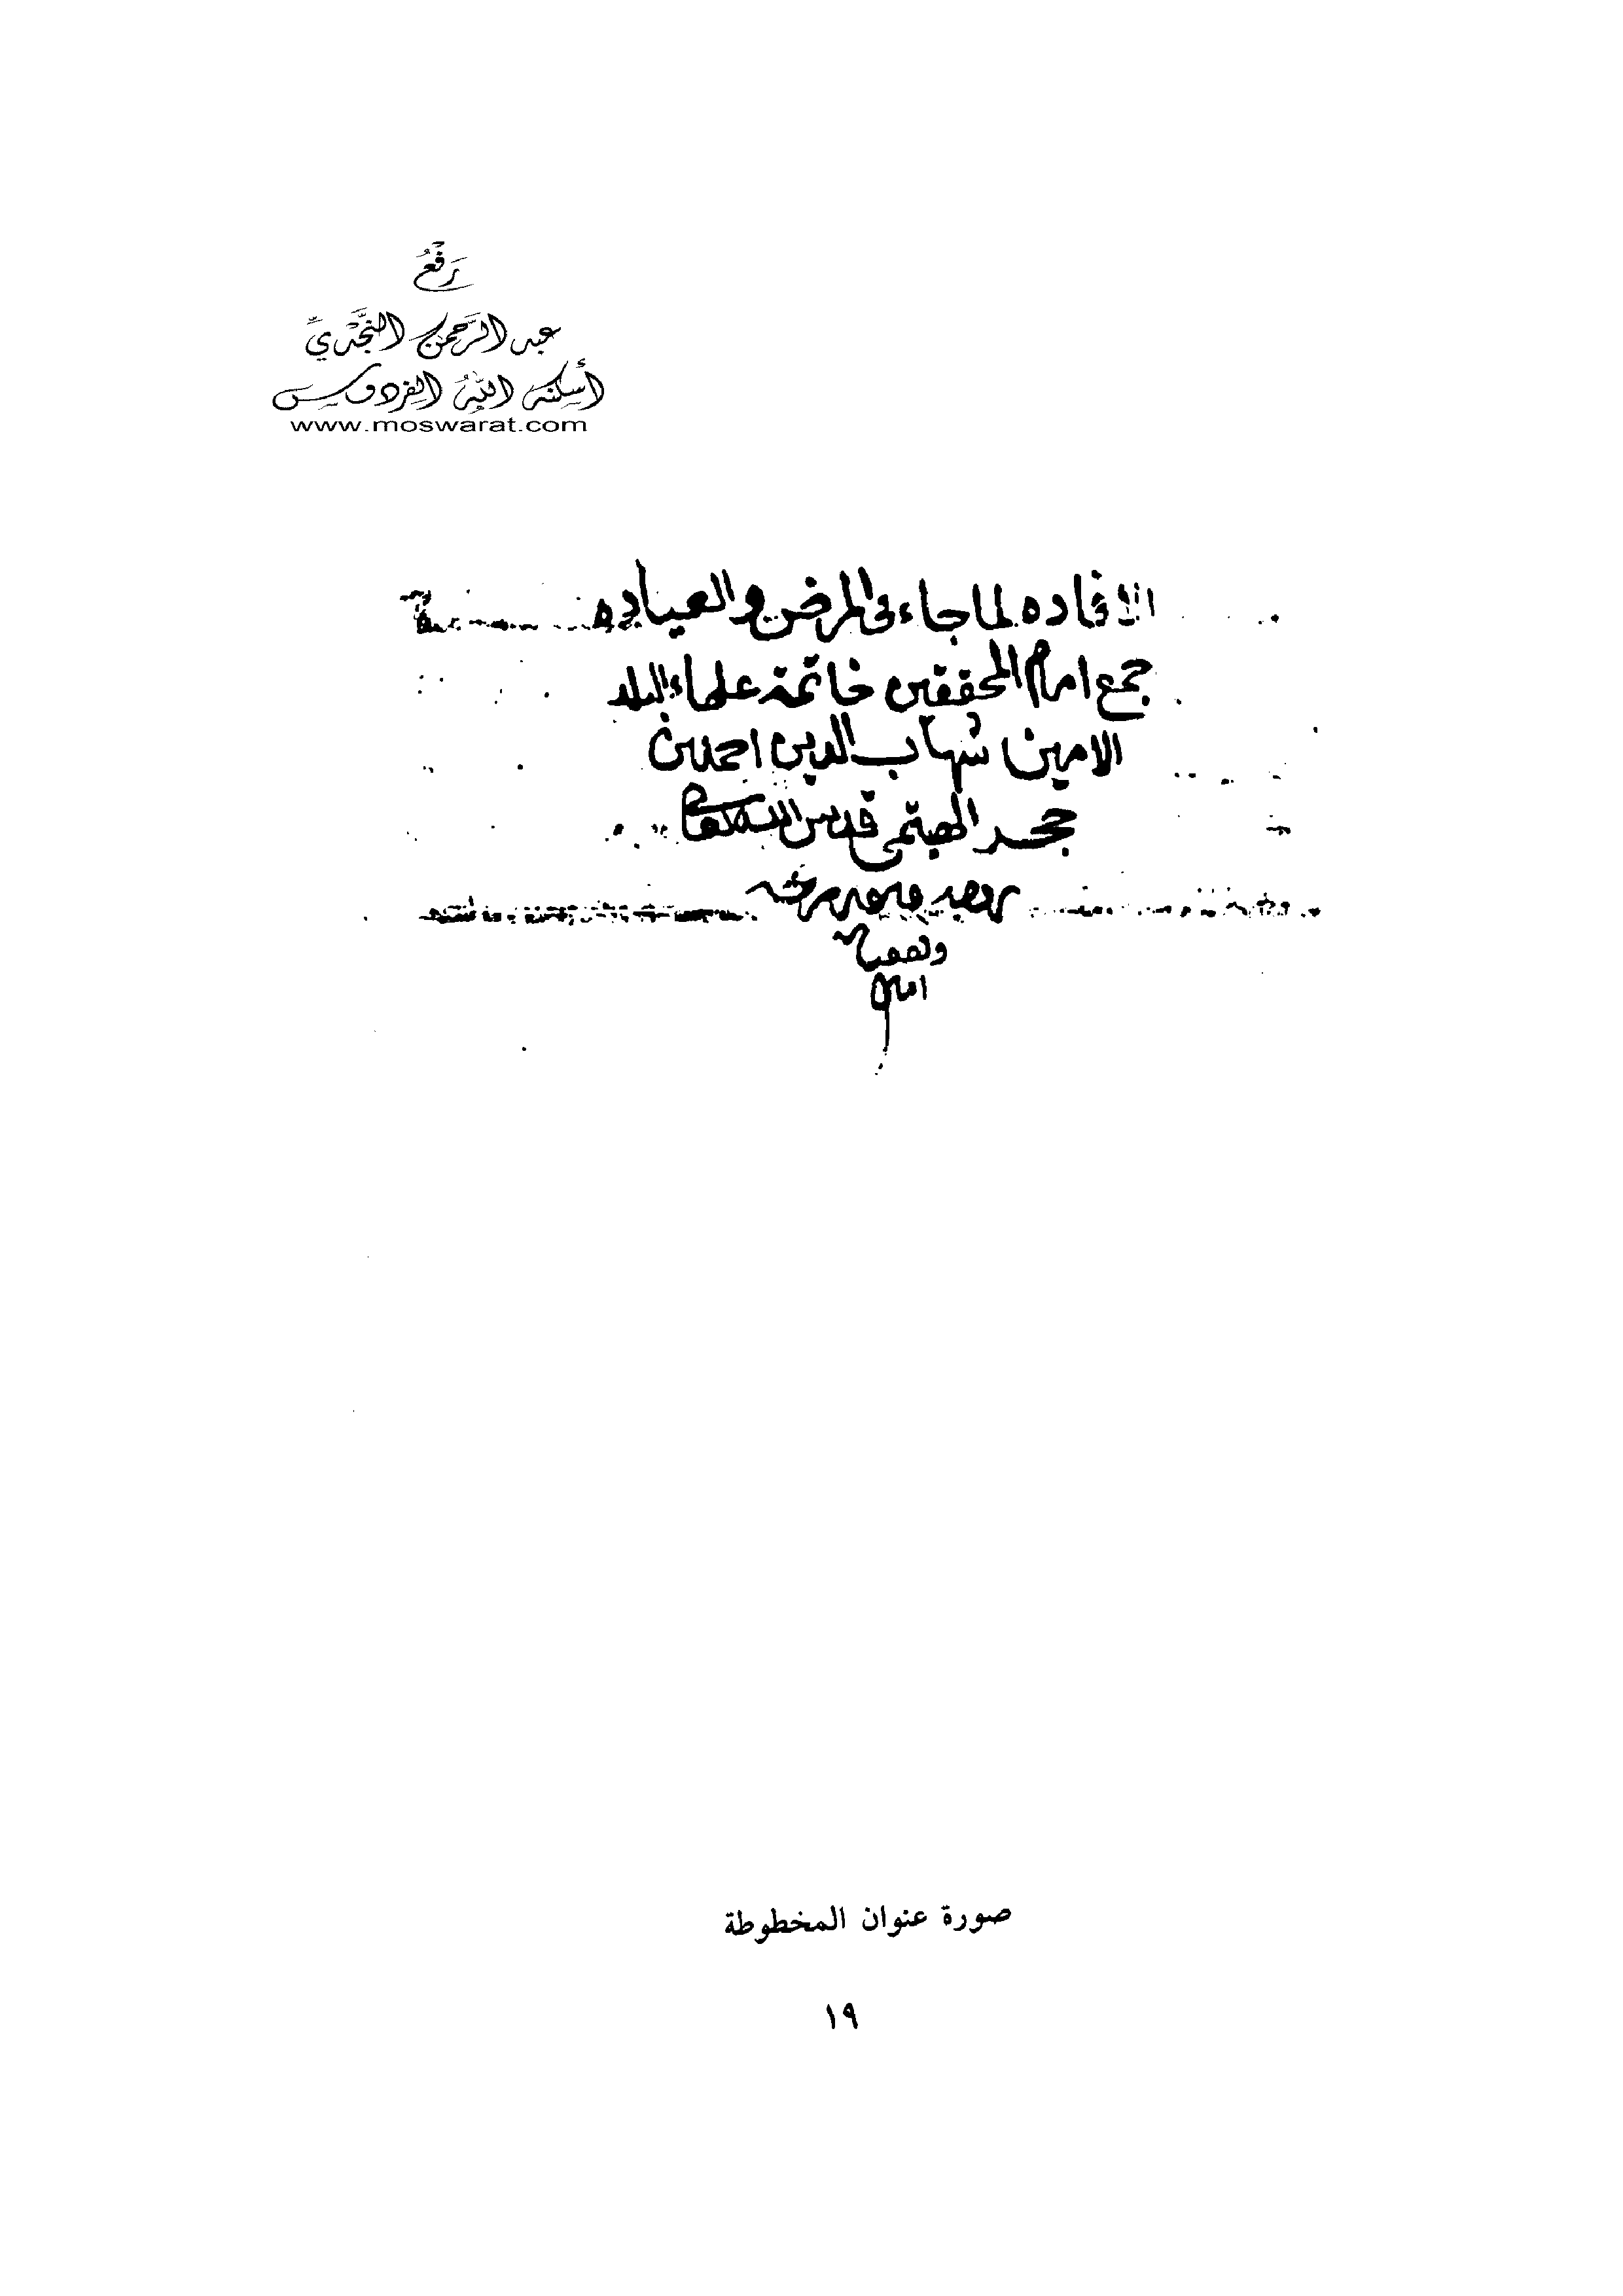 رَفْعُ
عبد الرَّحمن النَّجْديِّ
أسكنه اللهُ الفردوس
www.moswarat.com
الافاده لما جاء في المرض والعياده
جمع امام المحققين خاتمة علماء البلد
الامين شهاب الدين احمد بن
حجر الهيتمي قدس الله
ونفعنا به
امين
صورة عنوان المخطوطة
١٩